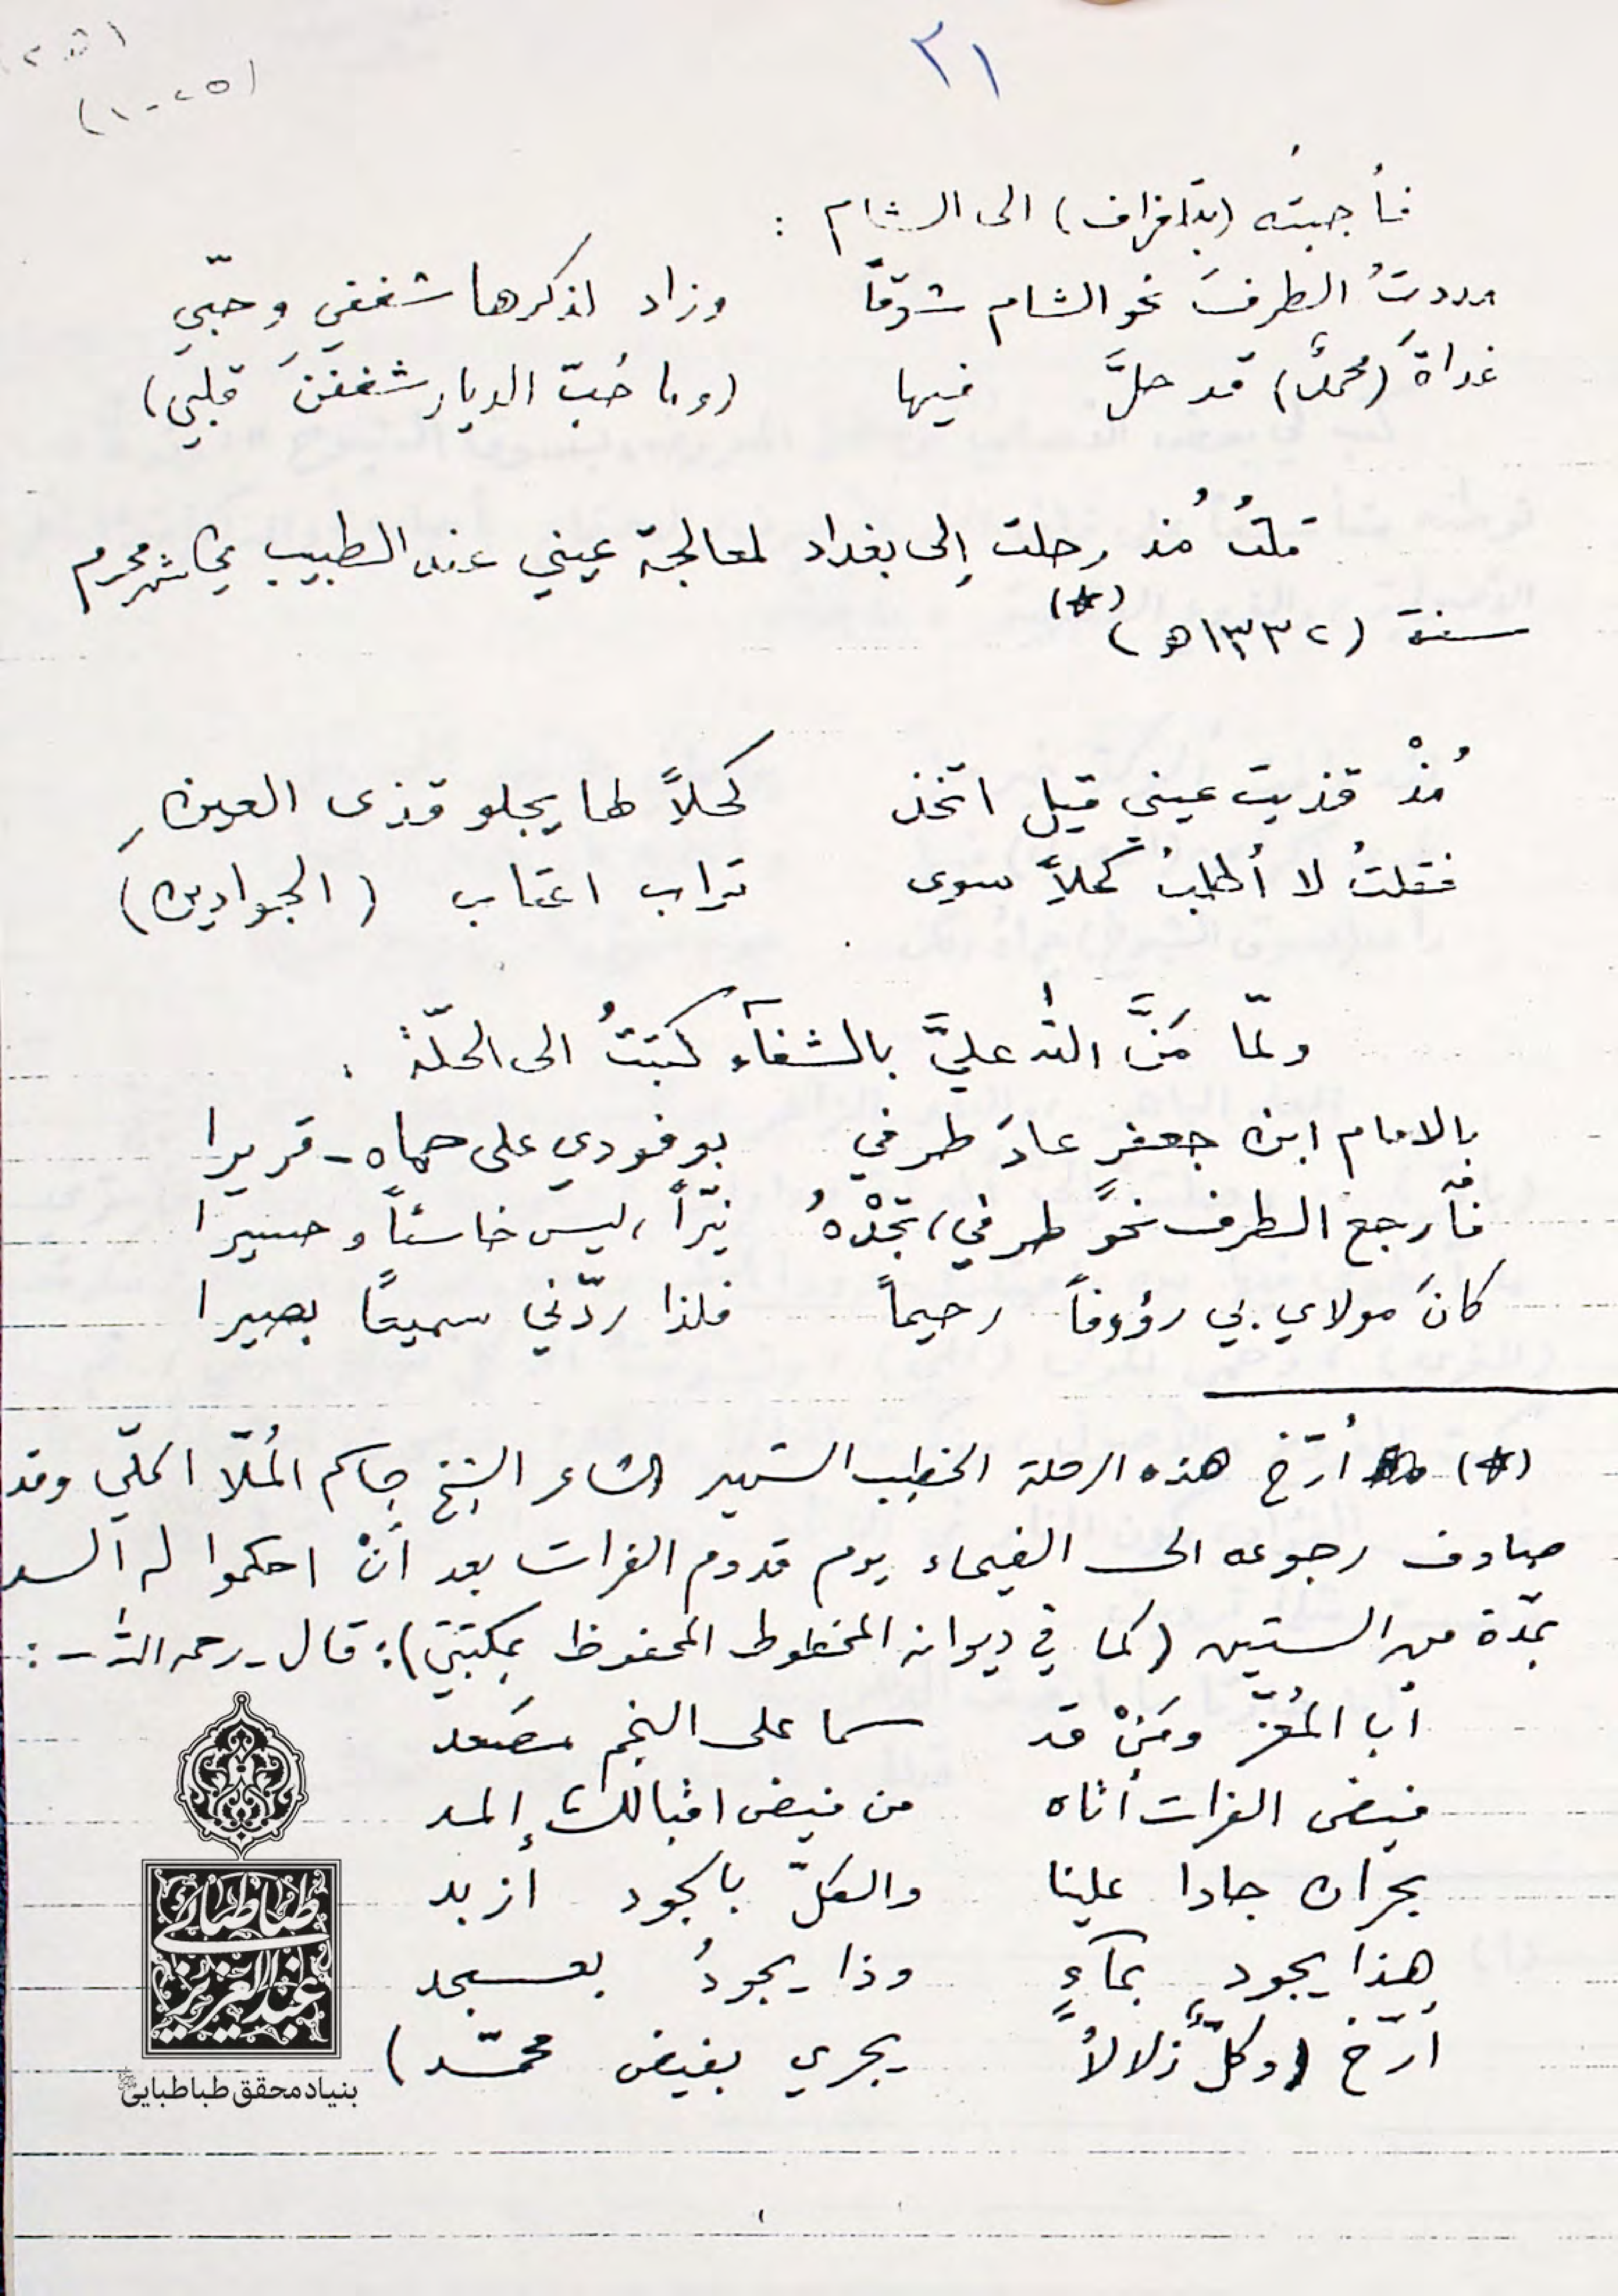 ٢١
(٢٥-١)
فأجبتُه (بتلغراف) الى الشام :
مددتُ الطرفَ نحو الشام شوقاً وزاد لذكرها شغفي وحبّي
غداةَ (محمدٌ) قد حلَّ فيها (وما حُبّ الديار شغفنَ قلبي)
قلتُ مُذ رحلت إلى بغداد لمعالجة عيني عند الطبيب في شهر محرم
سنة (١٣٣٢هـ) (*)
مُذْ قذيت عيني قيل اتخذ كحلاً لها يجلو قذى العينِ
فقلتُ لا أطلبُ كحلاً سوى تراب اعتاب (الجوادين)
ولمّا مَنَّ الله عليَّ بالشفآء كتبتُ الى الحلّة :
بالامام ابن جعفرٍ عادَ طرفي بوفودي على حماه - قريرا
فأرجع الطرف نحوَ طرفي، تجدْهُ نيّراً، ليس خاسئاً وحسيرا
كانَ مولاي بي رؤوفاً رحيماً فلذا ردّني سميعاً بصيرا
(*) أرّخ هذه الرحلة الخطيب الشهير الشاعر الشيخ جاسم المُلّا الحلّي وقد
صادف رجوعه الى الفيحاء يوم قدوم الفرات بعد أنْ احكموا له السد
بمدّة من السنين (كما في ديوانه المخطوط المحفوظ بمكتبتي): قال - رحمه الله - :
أبا المُعزّ ومَنْ قد سما على النجم مصعد
فيض الفرات أتاه من فيض اقبالك إلمد
بحران جادا علينا والكلّ بالجود ازبد
هذا يجود بمآءٍ وذا يجودُ بعسجد
أرّخ (وكلٌّ زلالاً يجري بفيض محمّد)
طباطبائي
عبدالعزيز
بنیاد محقق طباطبایی